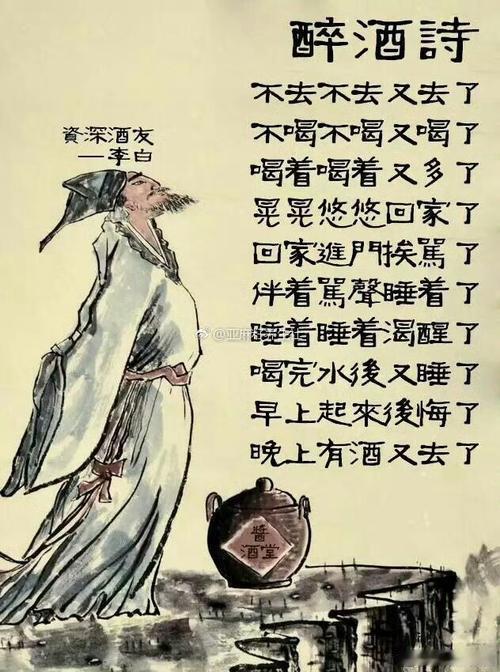 醉酒詩
不去不去又去了
不喝不喝又喝了
喝着喝着又多了
晃晃悠悠回家了
回家進門挨罵了
伴着罵聲睡着了
睡着睡着渴醒了
喝完水後又睡了
早上起來後悔了
晚上有酒又去了
資深酒友
—李白
醬
酒堂